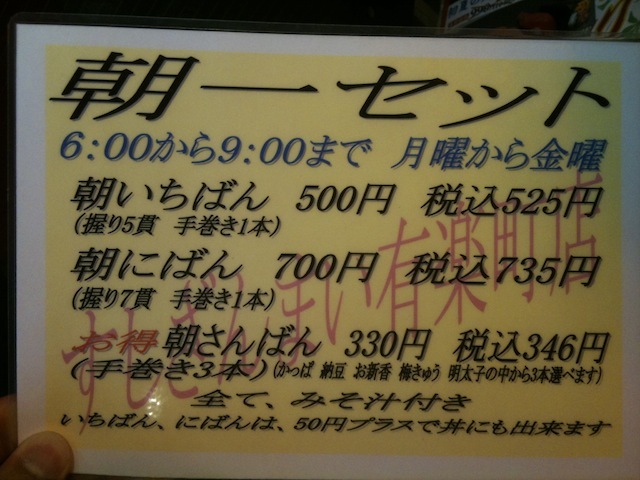 朝一セット
6:00から9:00まで 月曜から金曜
朝いちばん 500円 税込525円
(握り5貫 手巻き1本)
朝にばん 700円 税込735円
(握り7貫 手巻き1本)
お得 朝さんばん 330円 税込346円
(手巻き3本)(かっぱ 納豆 お新香 梅きゅう 明太子の中から3本選べます)
全て、みそ汁付き
いちばん、にばんは、50円プラスで丼にも出来ます